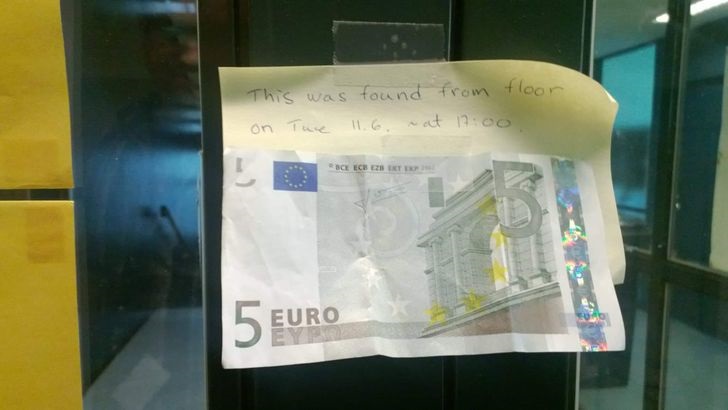 This was found from floor
on Tue 11.6. ~at 17:00.
© BCE ECB EZB EKT EKP 2002
5
5
5 EURO
ΕΥΡΩ